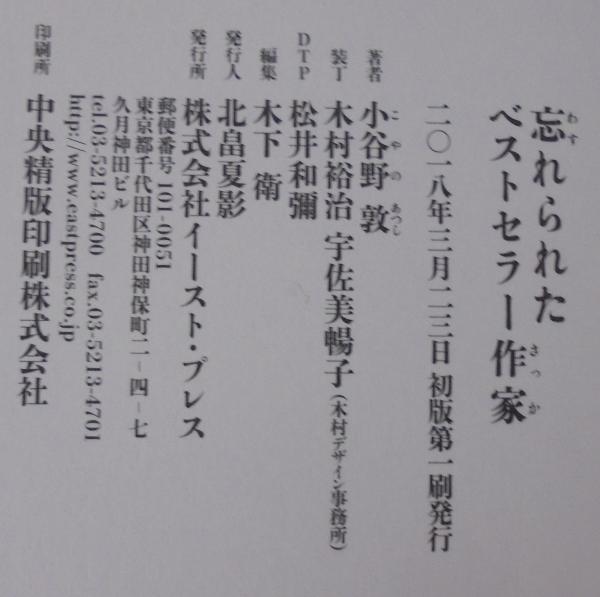 忘れられた
ベストセラー作家
わす
さっか
二〇一八年三月二三日 初版第一刷発行
著者 小谷野 敦
こやの あつし
装丁 木村裕治 宇佐美暢子(木村デザイン事務所)
DTP 松井和彌
編集 木下 衛
発行人 北畠夏影
発行所 株式会社イースト・プレス
郵便番号 101-0051
東京都千代田区神田神保町二-四-七
久月神田ビル
tel.03-5213-4700 fax.03-5213-4701
http://www.eastpress.co.jp
印刷所 中央精版印刷株式会社